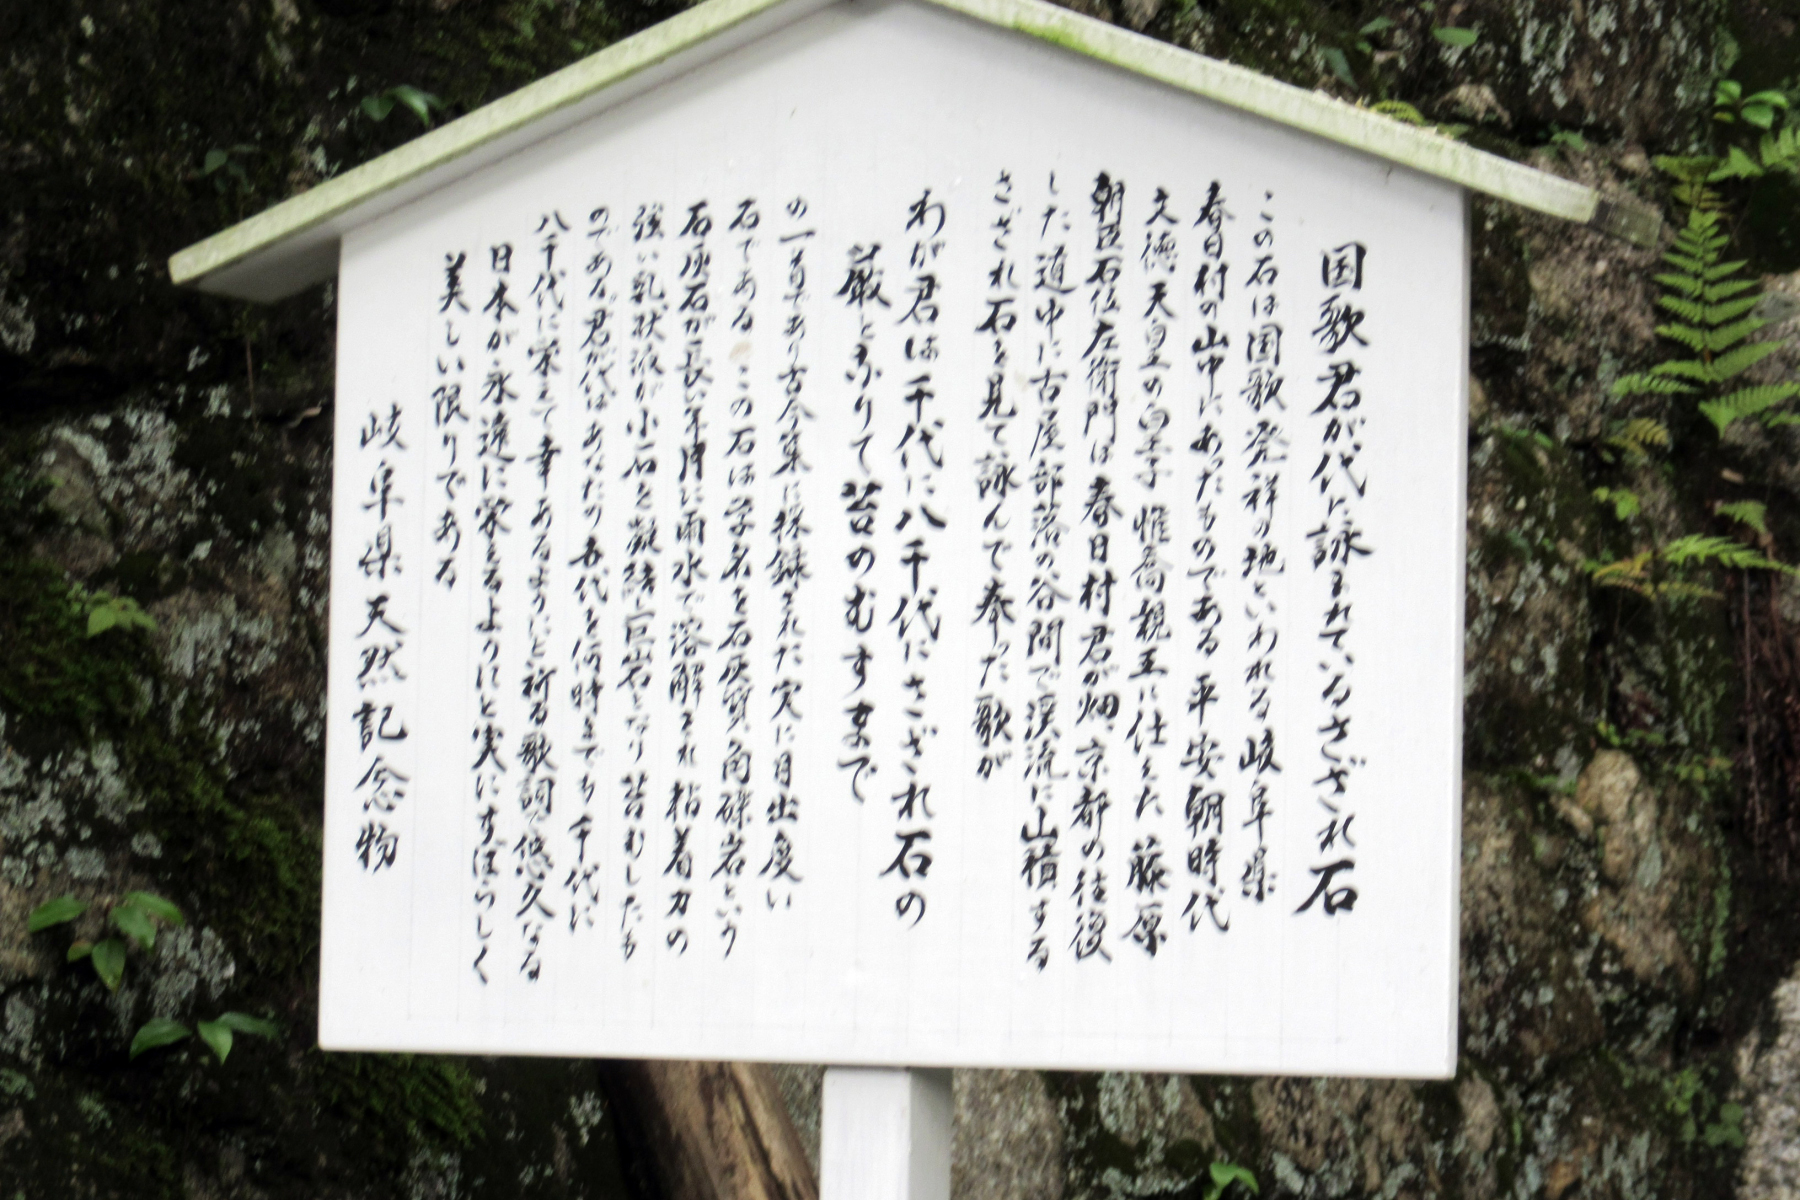 国歌君が代に詠まれているさざれ石
この石は国歌発祥の地といわれる岐阜県
春日村の山中にあったものである 平安朝時代
文徳天皇の皇子 惟喬親王に仕えた 藤原
朝臣石位左衛門は春日村君が畑、京都の往復
した道中に古屋部落の谷間で渓流に山積する
さざれ石を見て詠んで奉った歌が
わが君は千代に八千代にさざれ石の
巌となりて苔のむすまで
の一首であり古今集に採録された実に目出度い
石である この石は学名を石灰質角礫岩という
石灰石が長い年月に雨水で溶解され 粘着力の
強い乳状液が小石を凝結し巨岩となり苔むしたも
のである 君が代はあなたの御代を何時までも千代に
八千代に栄えて幸あるようにと祈る歌詞で悠久なる
日本が永遠に栄えるようにと実にすばらしく
美しい限りである
岐阜県天然記念物